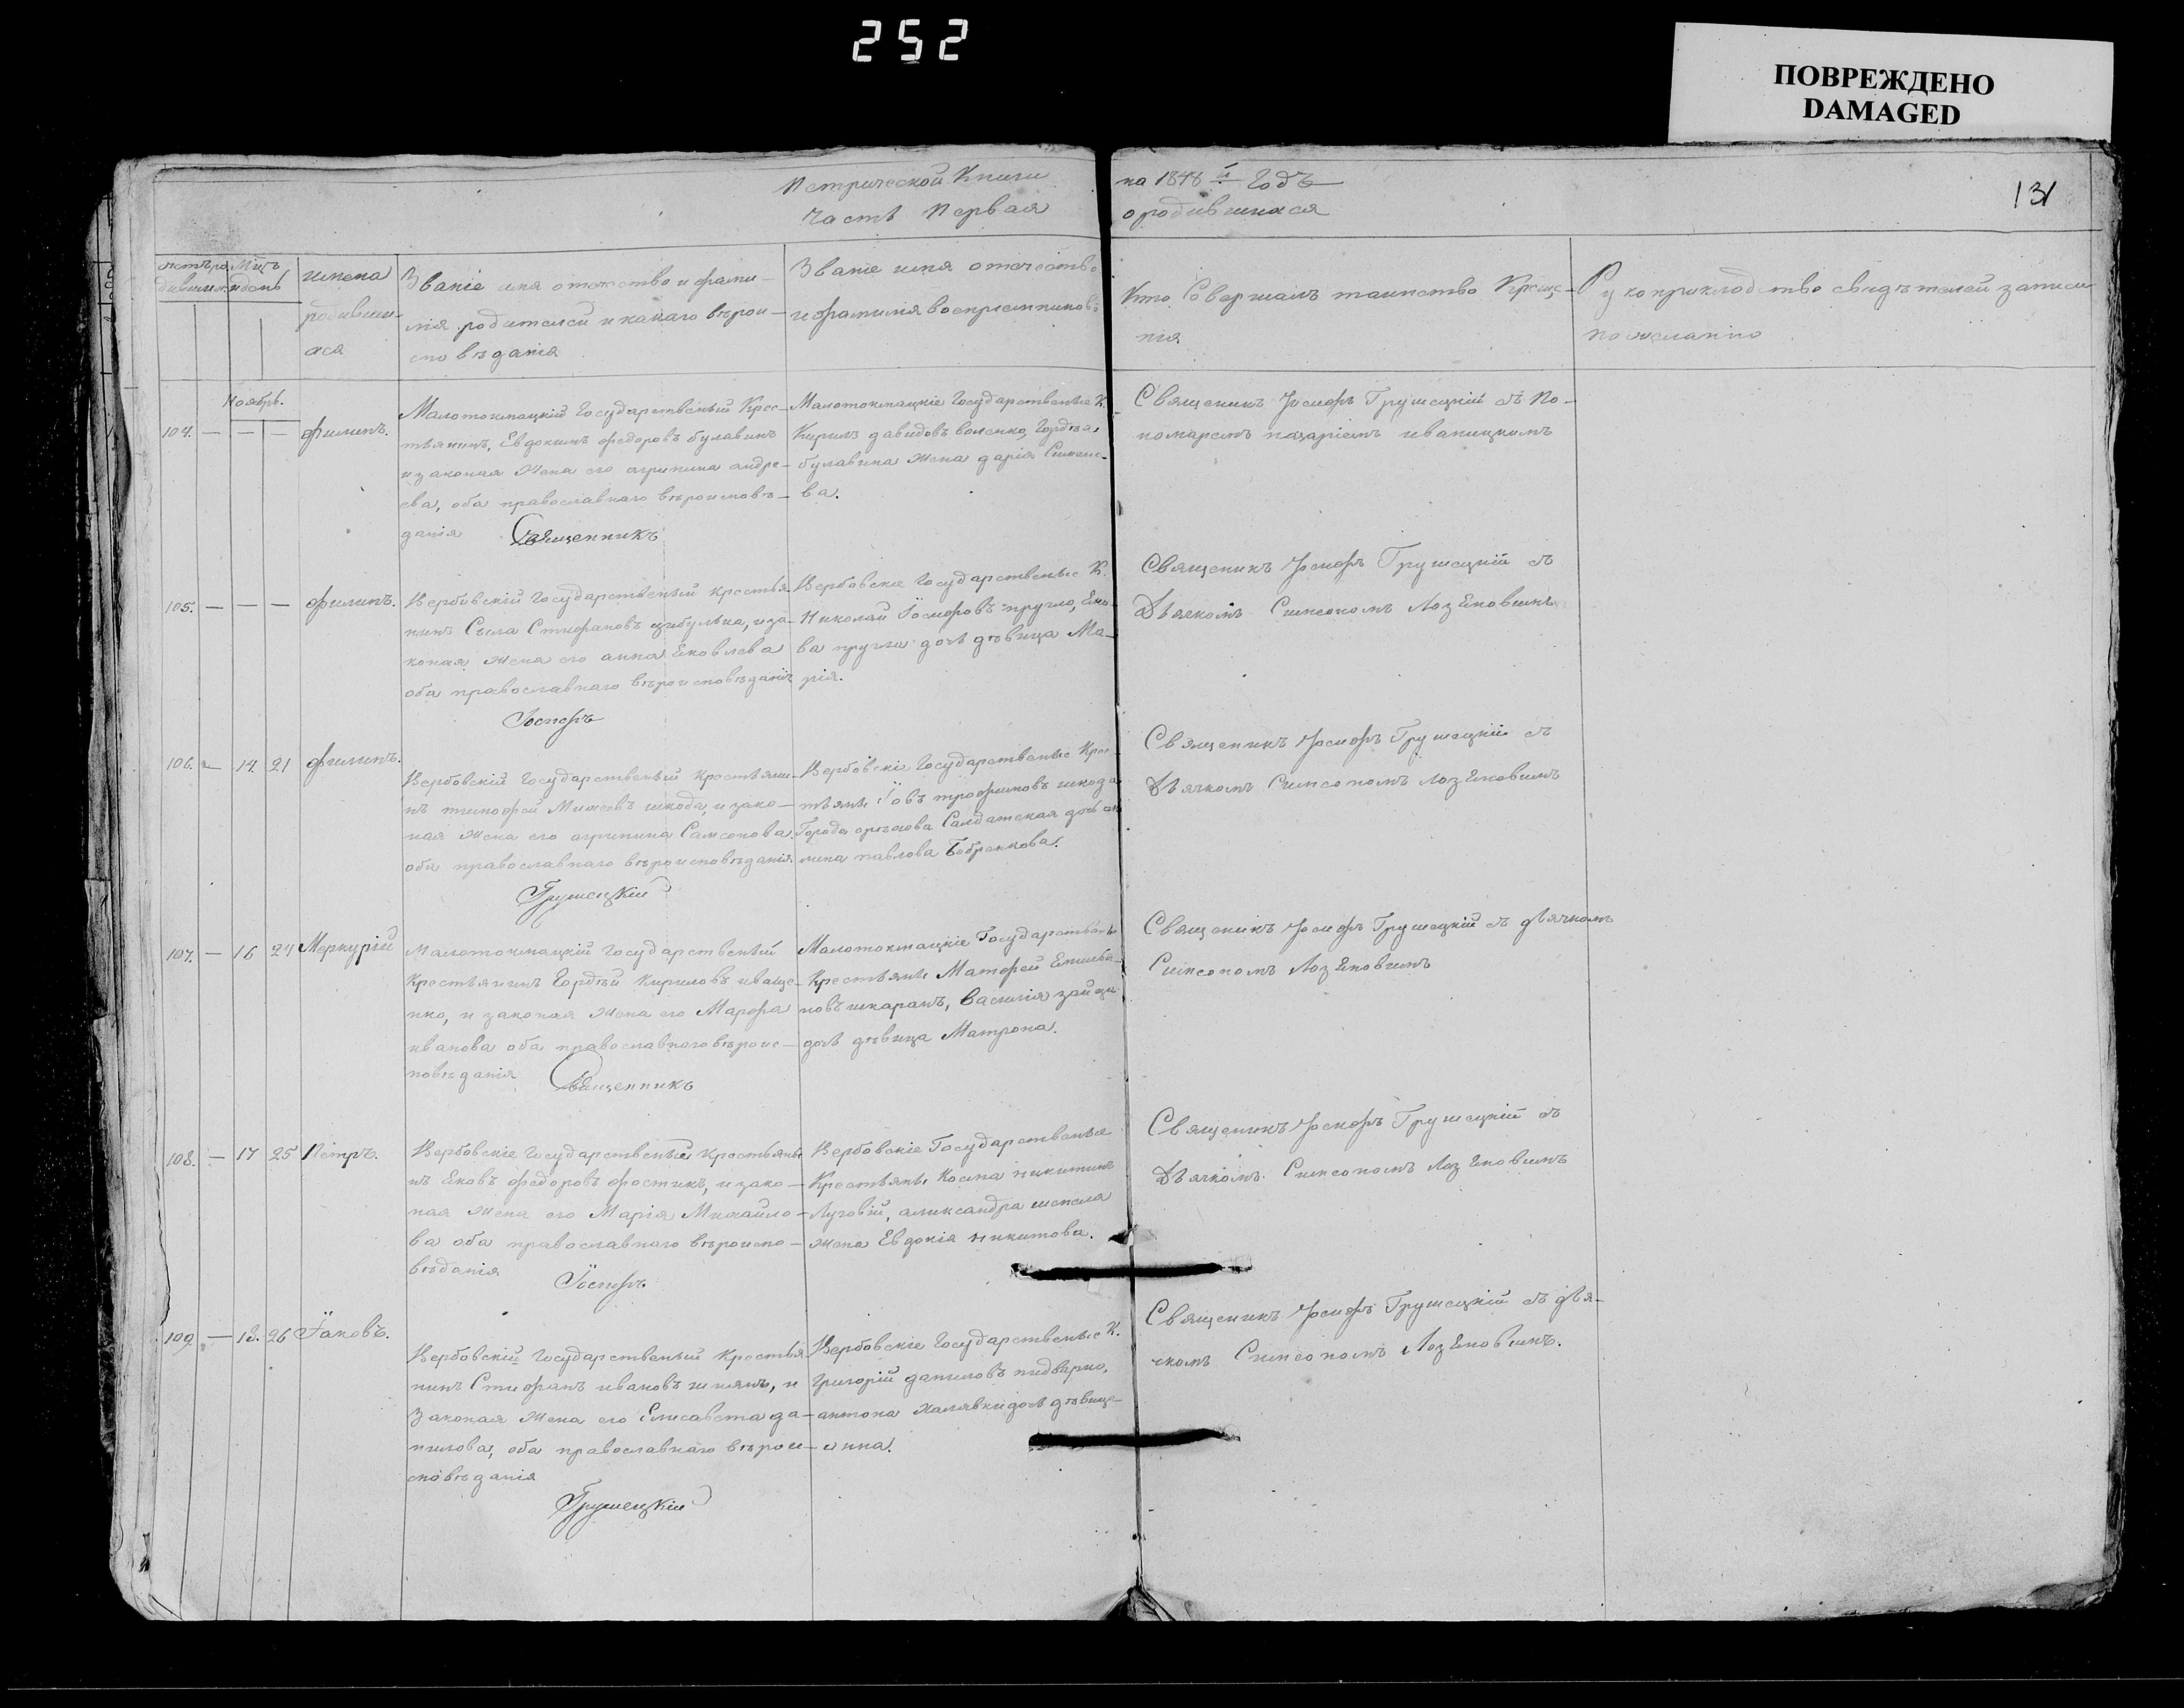 252
ПОВРЕЖДЕНО
DAMAGED
Метрической Книги на 1848й Годъ
Часть Первая о родившихся
131
Мцъ
имена
родивши-
хся
Званіе имя отечество и фами-
лія родителей и какаго вѣрои-
сповѣданія
Званіе имя отечество
и фамилія воспріемниковъ
Кто Совершалъ таинство Креще-
нія
Рукоприкладство свидѣтелей записи
по желанію
Ноябрь.
104. — — — филипъ.
Малотокмацкій Государственый Крес-
тьянинъ, Евдокимъ федоровъ булавинъ
и законая жена его агрипина андре-
ева, оба православнаго вѣроисповѣ-
данія
Священникъ
Малотокмацкіе Государственые К.
Кирилъ давидовъ воленко, Гордѣя
булавина жена дарія Симено-
ва.
Священикъ Іосифъ Грушецкій съ По-
номаремъ назаріемъ иваницкимъ
105. — — — филипъ.
Вербовскій Государственый крестья-
нинъ Сыла Стифановъ цибулька, и за-
коная жена его анна Яковлева
оба православнаго вѣроисповѣданія
Іосифъ
Вербовскіе Государственые К.
Николай Іосифовъ пругло, Яко-
ва пругли дочь дѣвица Ма-
рія.
Священикъ Іосифъ Грушецкій съ
Дьячкомъ Симеономъ Лозяновимъ
106. — 14. 21 филипъ.
Вербовскій Государственый крестьяни-
нъ тимофей Михеевъ шкода, и зако-
ная жена его агрипина Самсонова
оба православнаго вѣроисповѣданія
Грушецкій
Вербовскіе Государственые Крес
тьяне Іовъ трофимовъ шкода
Города орѣхова Салдатская дочь
павлова Бобренкова.
Священикъ Іосифъ Грушецкій съ
Дьячкомъ Симеономъ Лозяновимъ
107. — 16 24 Меркурій
Малотокмацкій Государственый
Крестьянинъ Гордѣй Кириловъ иваще-
нко, и законая жена его Марфа
иванова оба православнаго вѣроис-
повѣданія
Священникъ
Малотокмацкіе Государствены
Крестьяне Матфей Емилья-
новъ шкарапъ, Василія зайца
дочь дѣвица Матрона.
Священикъ Іосифъ Грушецкій съ дьячкомъ
Симеономъ Лозяновимъ
108. — 17 25 Пётръ.
Вербовскіе Государственые крестьяни
нъ Яковъ федоровъ фостикъ, и зако-
ная жена его Марія Михайло-
ва оба православнаго вѣроиспо-
вѣданія
Іосифъ
Вербовскіе Государственые
Крестьяне Косма никитинъ
Луговій, александра шепеля
жена Евдокія никитова.
Священикъ Іосифъ Грушецкій съ
Дьячкомъ Симеономъ Лозяновимъ
109. — 18. 26 Іаковъ.
Вербовскій Государственый крестья
нинъ Стифанъ ивановъ шпякъ, и
законая жена его Елисавета да-
нилова, оба православнаго вѣрои-
сповѣданія
Грушецкій
Вербовскіе Государственые К.
Григорій даниловъ пидварко,
антона халявки дочь дѣвица
анна.
Священикъ Іосифъ Грушецкій съ дья-
чкомъ Симеономъ Лозяновимъ.